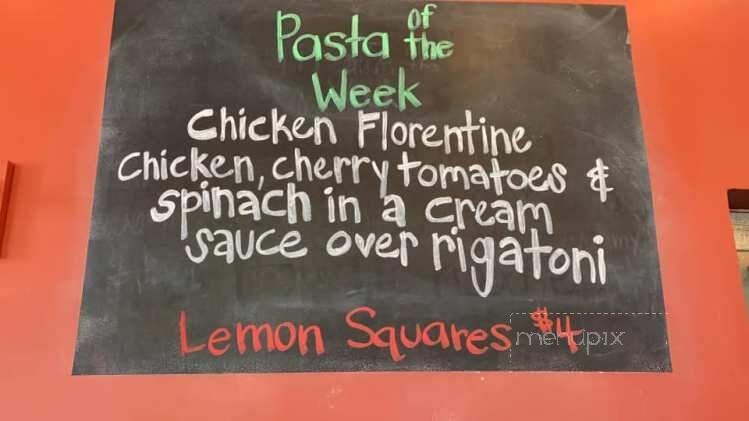 Pasta of the
Week
Chicken Florentine
Chicken, cherry tomatoes &
spinach in a cream
sauce over rigatoni
Lemon Squares $4
menupix